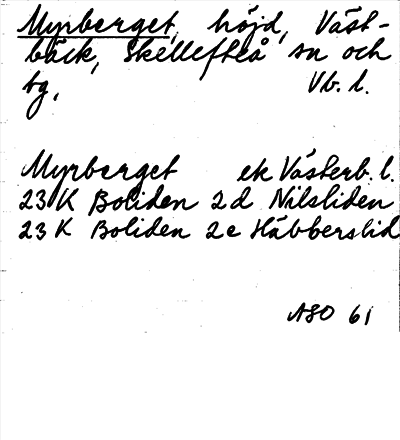 Myrberget, höjd, Väst-
bäck, Skellefteå sn och
tg, Vb. l.
Myrberget ek Västerb. l.
23 K Boliden 2 d Nilsliden
23 K Boliden 2 e Häbberslid
ASO 61